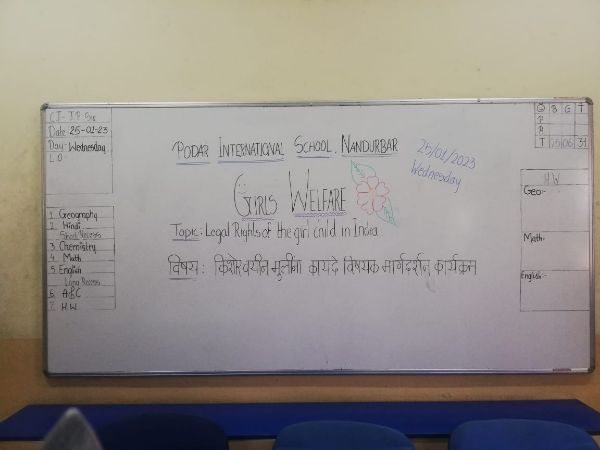 Date 25-01-23
Day: Wednesday
PODAR INTERNATIONAL SCHOOL, NANDURBAR
25/01/2023
Wednesday
GIRLS WELFARE
Topic: Legal Rights of the girl child in India
विषय: किशोरवयीन मुलींना कायदे विषयक मार्गदर्शन कार्यक्रम
1 Geography
2 Hindi
Short Recess
3 Chemistry
4 Math
5 English
Long Recess
6
7 H.W
B G T
P
A
T
H.W
Geo:-
Math:-
English:-